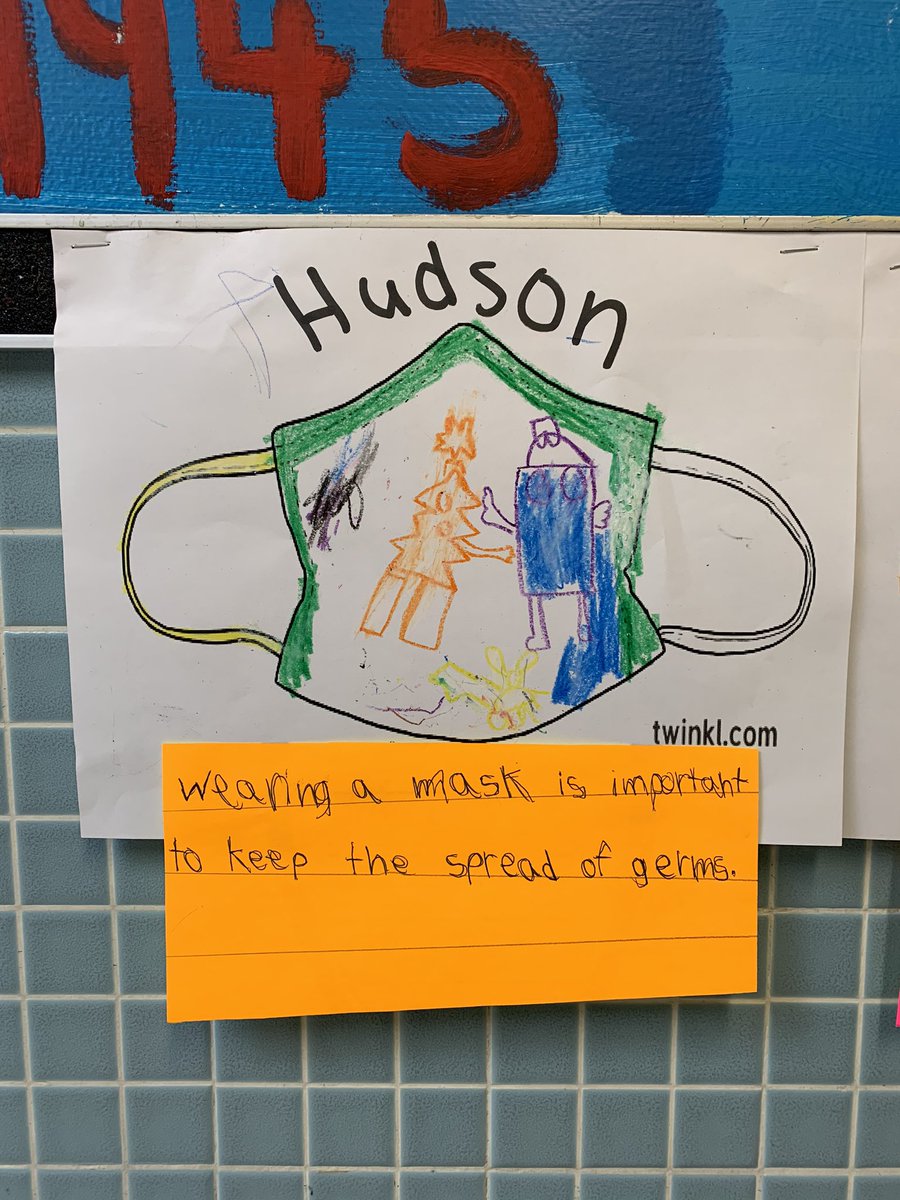 1945
Hudson
twinkl.com
wearing a mask is important
to keep the spread of germs.